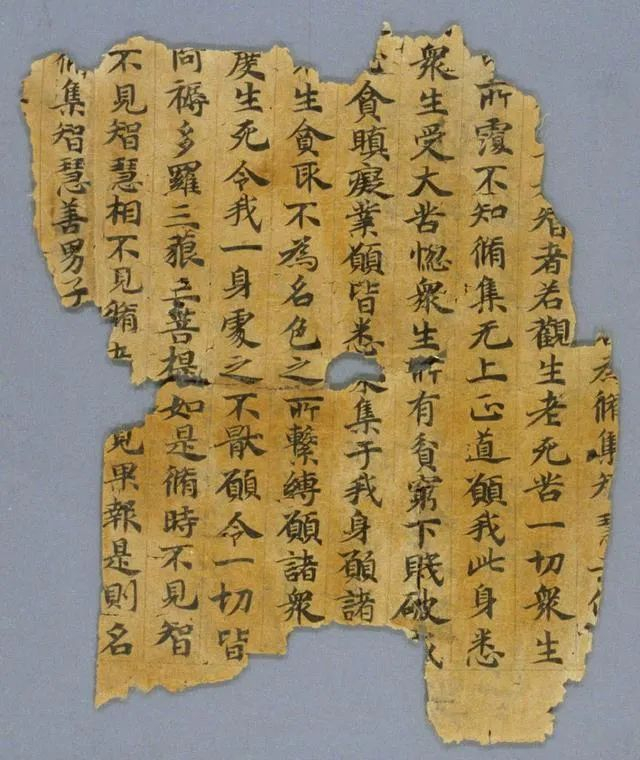 脩集
智者若觀生老死苦一切衆生
所覆不知脩集无上正道願我此身悉
衆生受大苦惚衆生所有貧窮下賤破
貪瞋癡業願皆悉集于我身願諸
生貪取不為名色之所繫縛願諸衆
度生死令我一身處之不猒願令一切皆
阿耨多羅三藐三菩提如是脩時不見智
不見智慧相不見脩見果報是則名
脩集智慧善男子